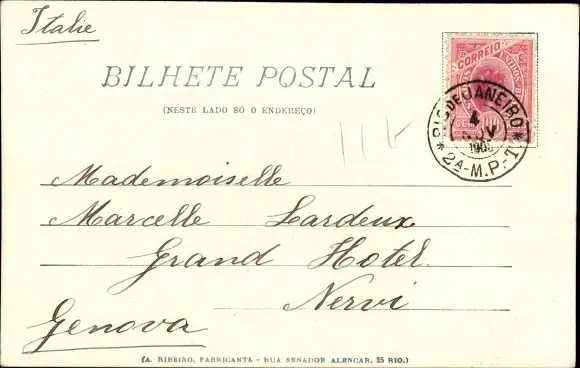 Italie
BILHETE POSTAL
(NESTE LADO SÓ O ENDEREÇO)
CORREIO
RIO DE JANEIRO
4
NOV
2A-M.P.-T
Mademoiselle
Marcelle Lardeux
Grand Hotel
Nervi
Genova
(A. RIBEIRO, FABRICANTE - RUA SENADOR ALENCAR, 25 RIO.)